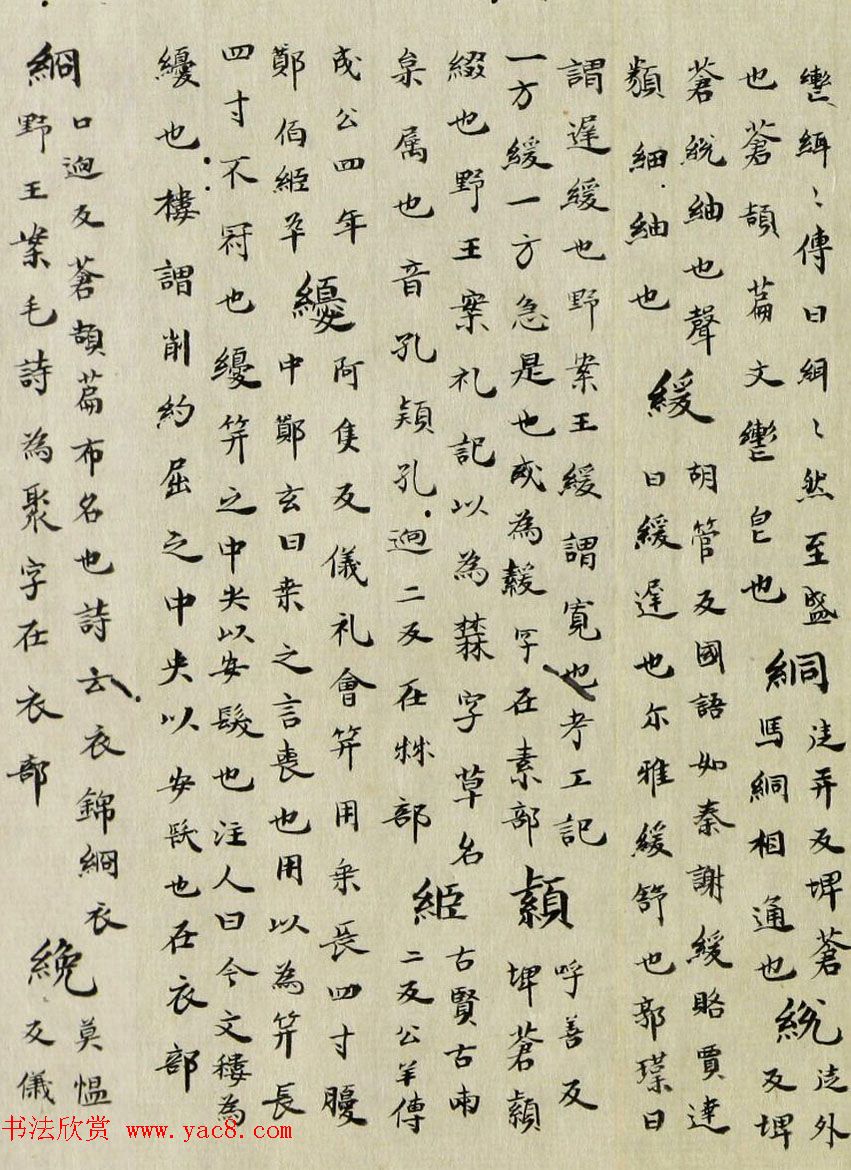 轡緝〻傳曰緝〻然至盛 徒弄反埤蒼 徒外
也蒼頡篇文轡皀也 絧 馬絧相通也 綐 反埤
蒼綐紬也聲 胡管反國語如秦謝緩賂賈逵
類細紬也 緩 曰緩遲也尓雅緩舒也郭璞曰
謂遲緩也野案王緩謂寬也考工記 呼善反
一方緩一方急是也或為字在素部 埤蒼
綴也野王案礼記以為字草名 古賢古兩
枲属也音孔熲孔迥二反在部 絚 二反公羊傳
成公四年 阿隻反儀礼會笄用桒長四寸
鄭伯絚卒 纋 中鄭玄曰桒之言喪也用以為笄長
四寸不冠也纋笄之中央以安髮也注人曰今文為
纋也謂削約屈之中央以安髮也在衣部
口迥反蒼頡篇布名也詩云衣錦絅衣 莫愠
絅 野王案毛詩為聚字在衣部 絻 反儀
书法欣赏 www.yac8.com